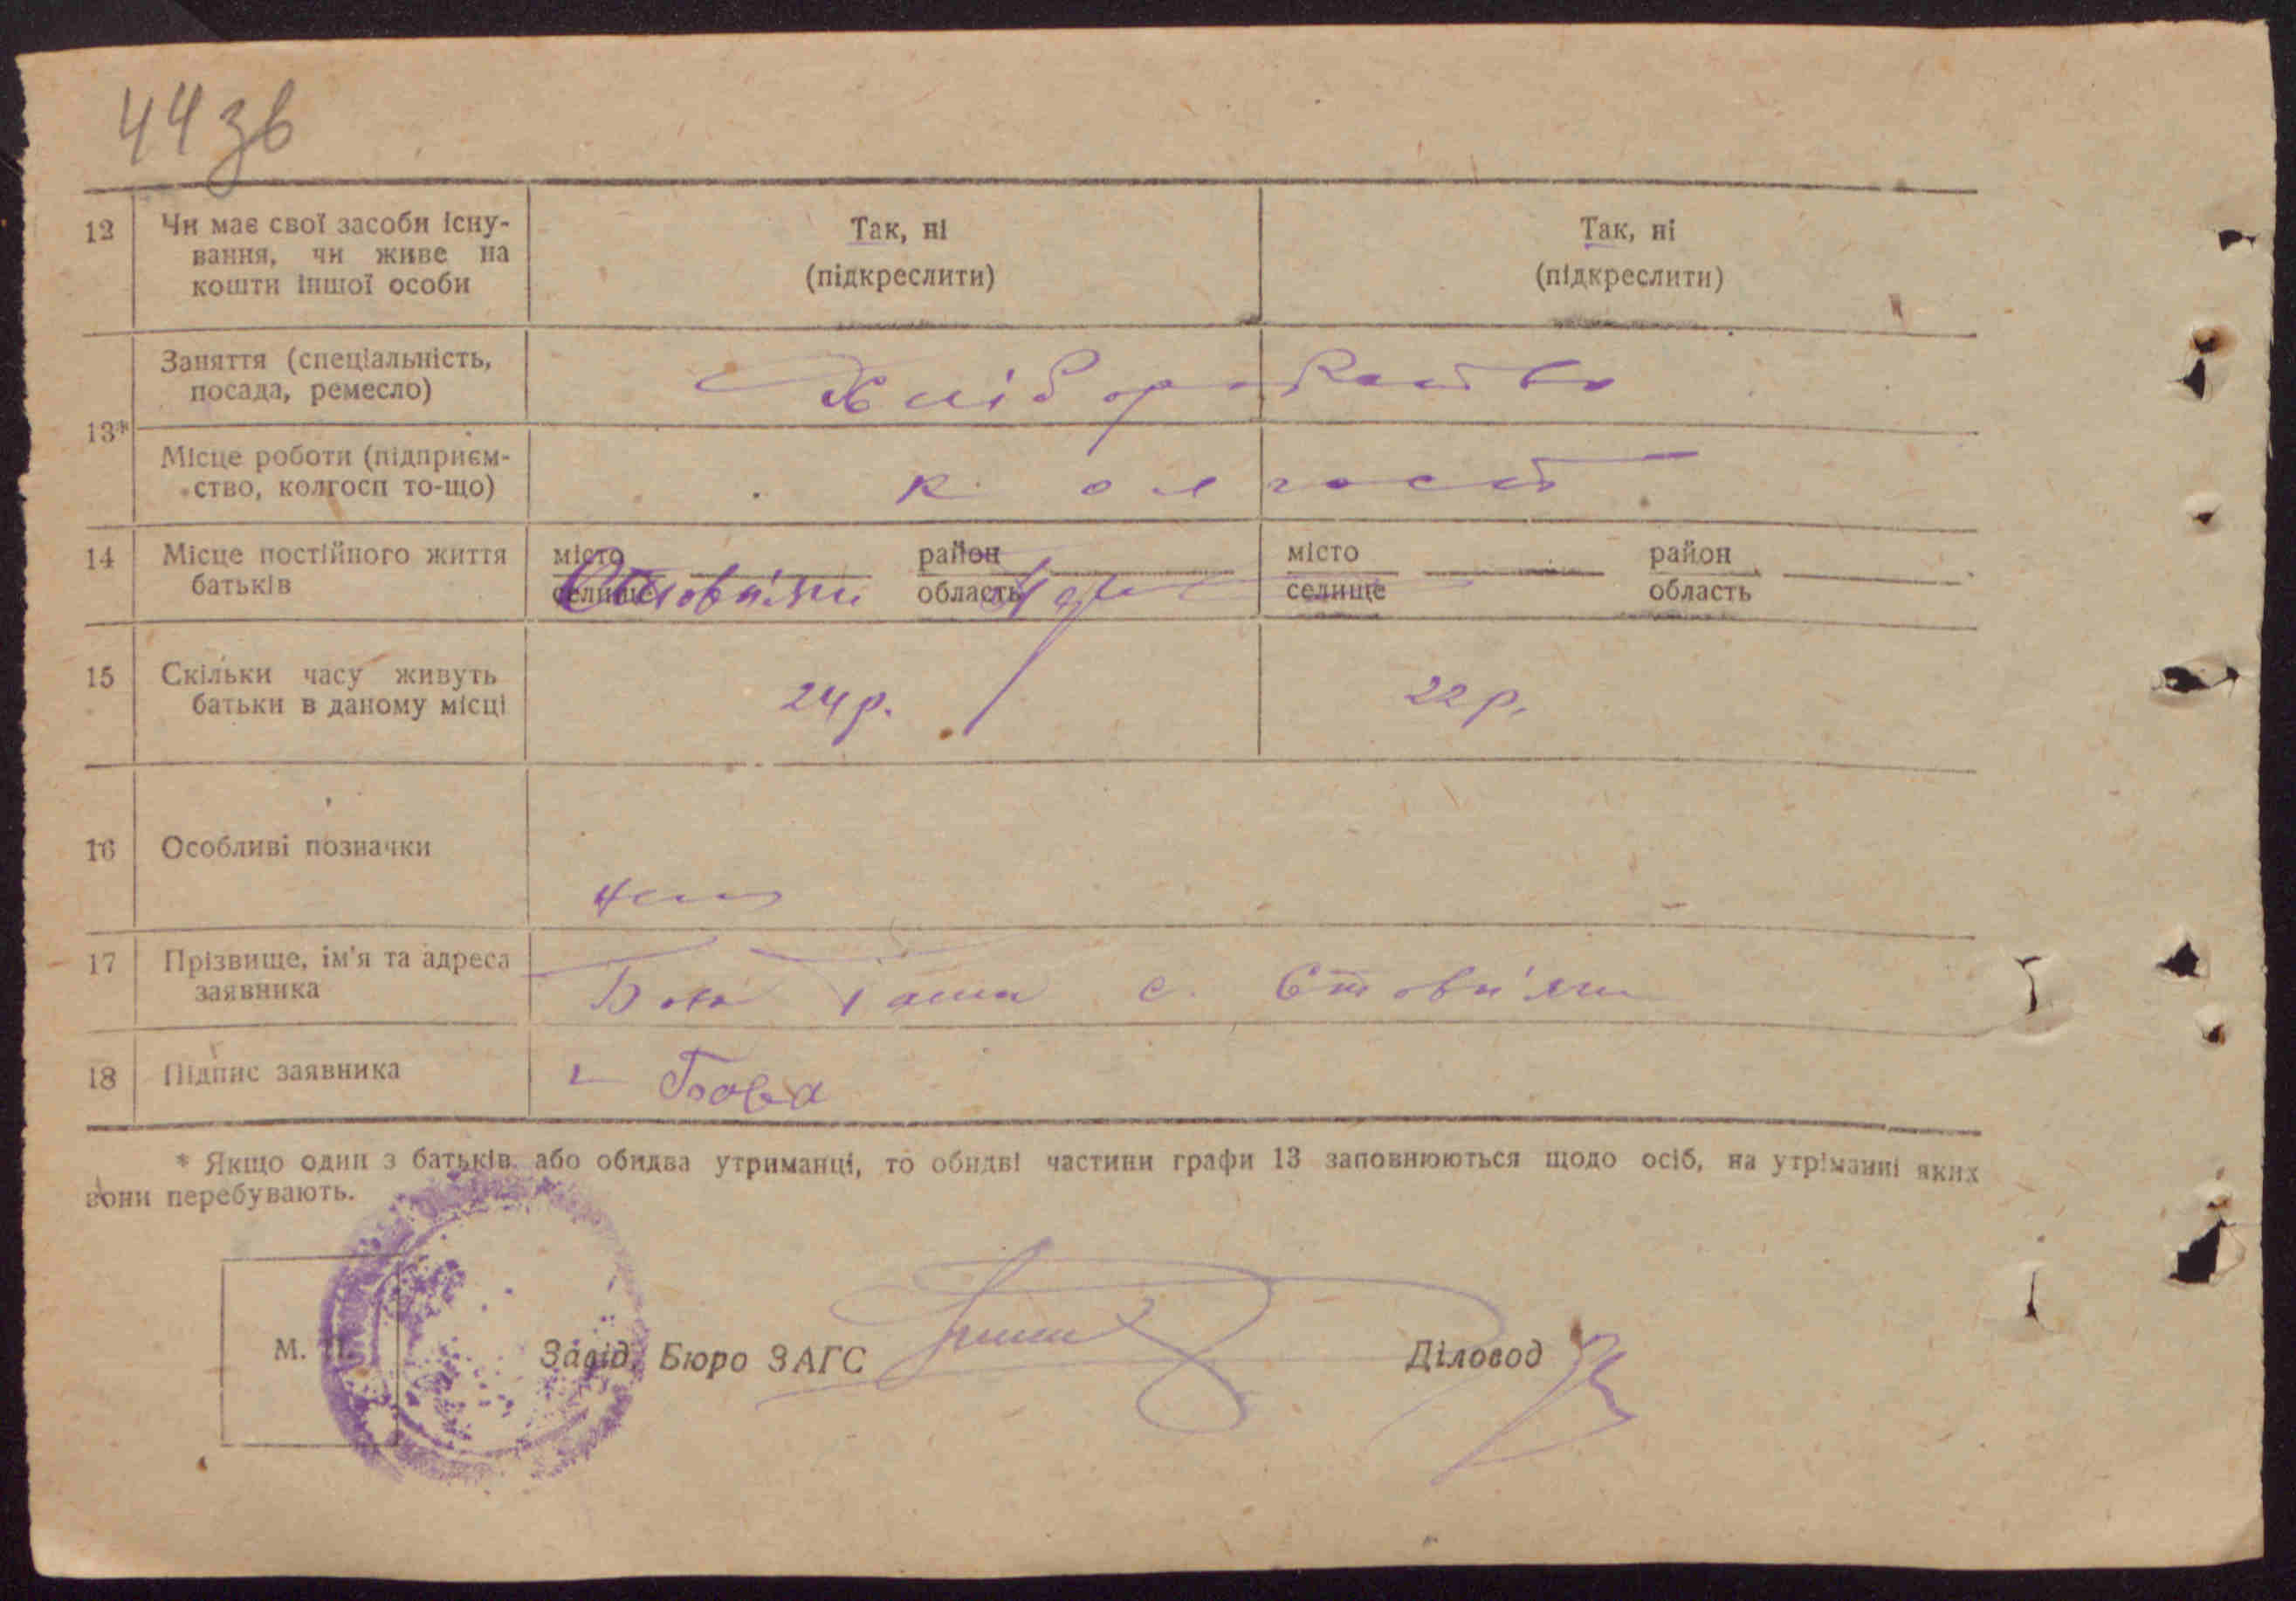 44 зв
12 Чи має свої засоби існу- Так, ні Так, ні
вання, чи живе на
кошти іншої особи (підкреслити) (підкреслити)
Заняття (спеціальність,
посада, ремесло) Хліборобство
13*
Місце роботи (підприєм-
ство, колгосп то-що) колгосп
14 Місце постійного життя місто район місто район
батьків селище Стовп'яги область селище область
15 Скільки часу живуть
батьки в даному місці 24 р. 22 р.
16 Особливі позначки
нема
17 Прізвище, ім'я та адреса
заявника с. Стовп'яги
18 Підпис заявника Бова
* Якщо один з батьків або обидва утриманці, то обидві частини графи 13 заповнюються щодо осіб, на утріманні яких
вони перебувають.
М. П. Завід. Бюро ЗАГС Діловод